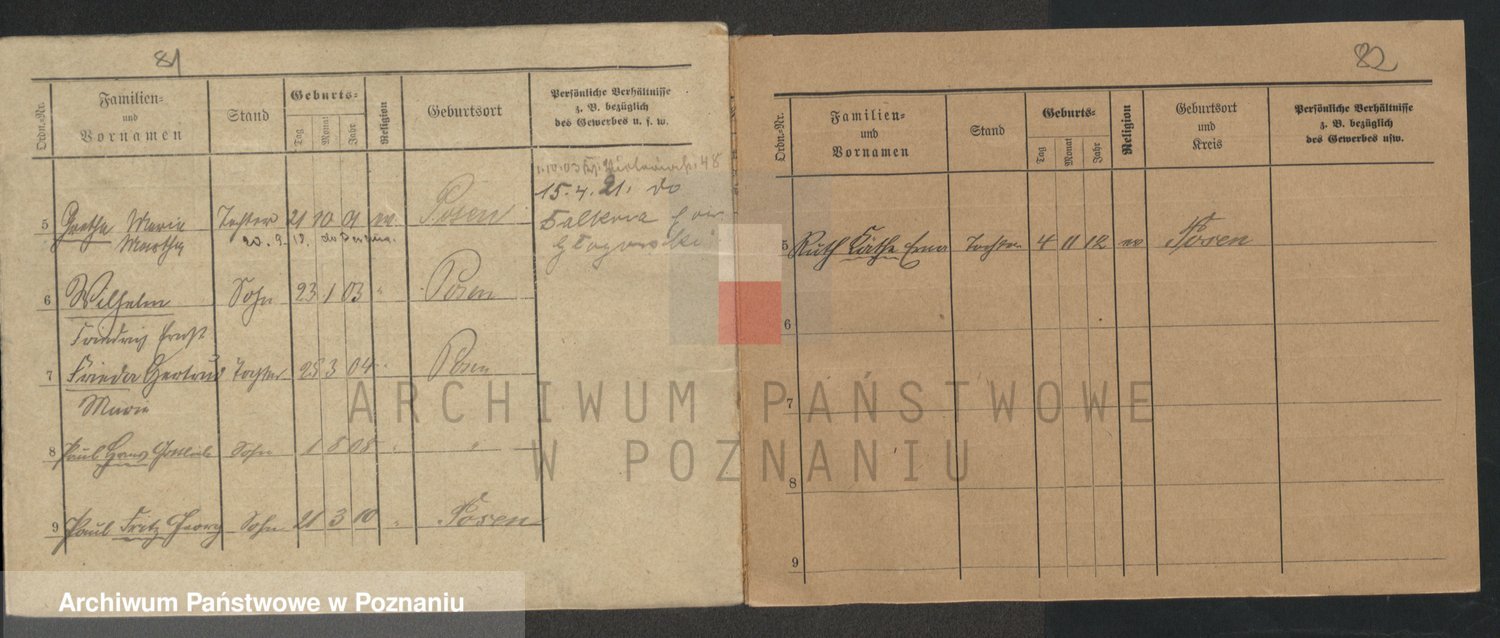 81
Ordn.-Nr.
Familien-
und
Vornamen
Stand
Geburts-
Tag
Monat
Jahr
Religion
Geburtsort
Persönliche Verhältnisse
z. B. bezüglich
des Gewerbes u. s. w.
15.4.21. do
5 Gretha Marie Tochter 21 10 01 ev. Posen
Martha 20. 9. 18.
6 Wilhelm Sohn 23 1 03 " Posen
Friedrich Ernst
7 Frieda Gertrud Tochter 25 3 04 " Posen
Marie
8 Paul Hans Gottlieb Sohn 1 8 08 " "
9 Paul Fritz Georg Sohn 21 3 10 " Posen
82
Ordn.-Nr.
Familien-
und
Vornamen
Stand
Geburts-
Tag
Monat
Jahr
Religion
Geburtsort
und
Kreis
Persönliche Verhältnisse
z. B. bezüglich
des Gewerbes usw.
5 Ruth Käthe Erna Tochter 4 11 12 ev Posen
6
7
8
9
ARCHIWUM PAŃSTWOWE
W POZNANIU
Archiwum Państwowe w Poznaniu